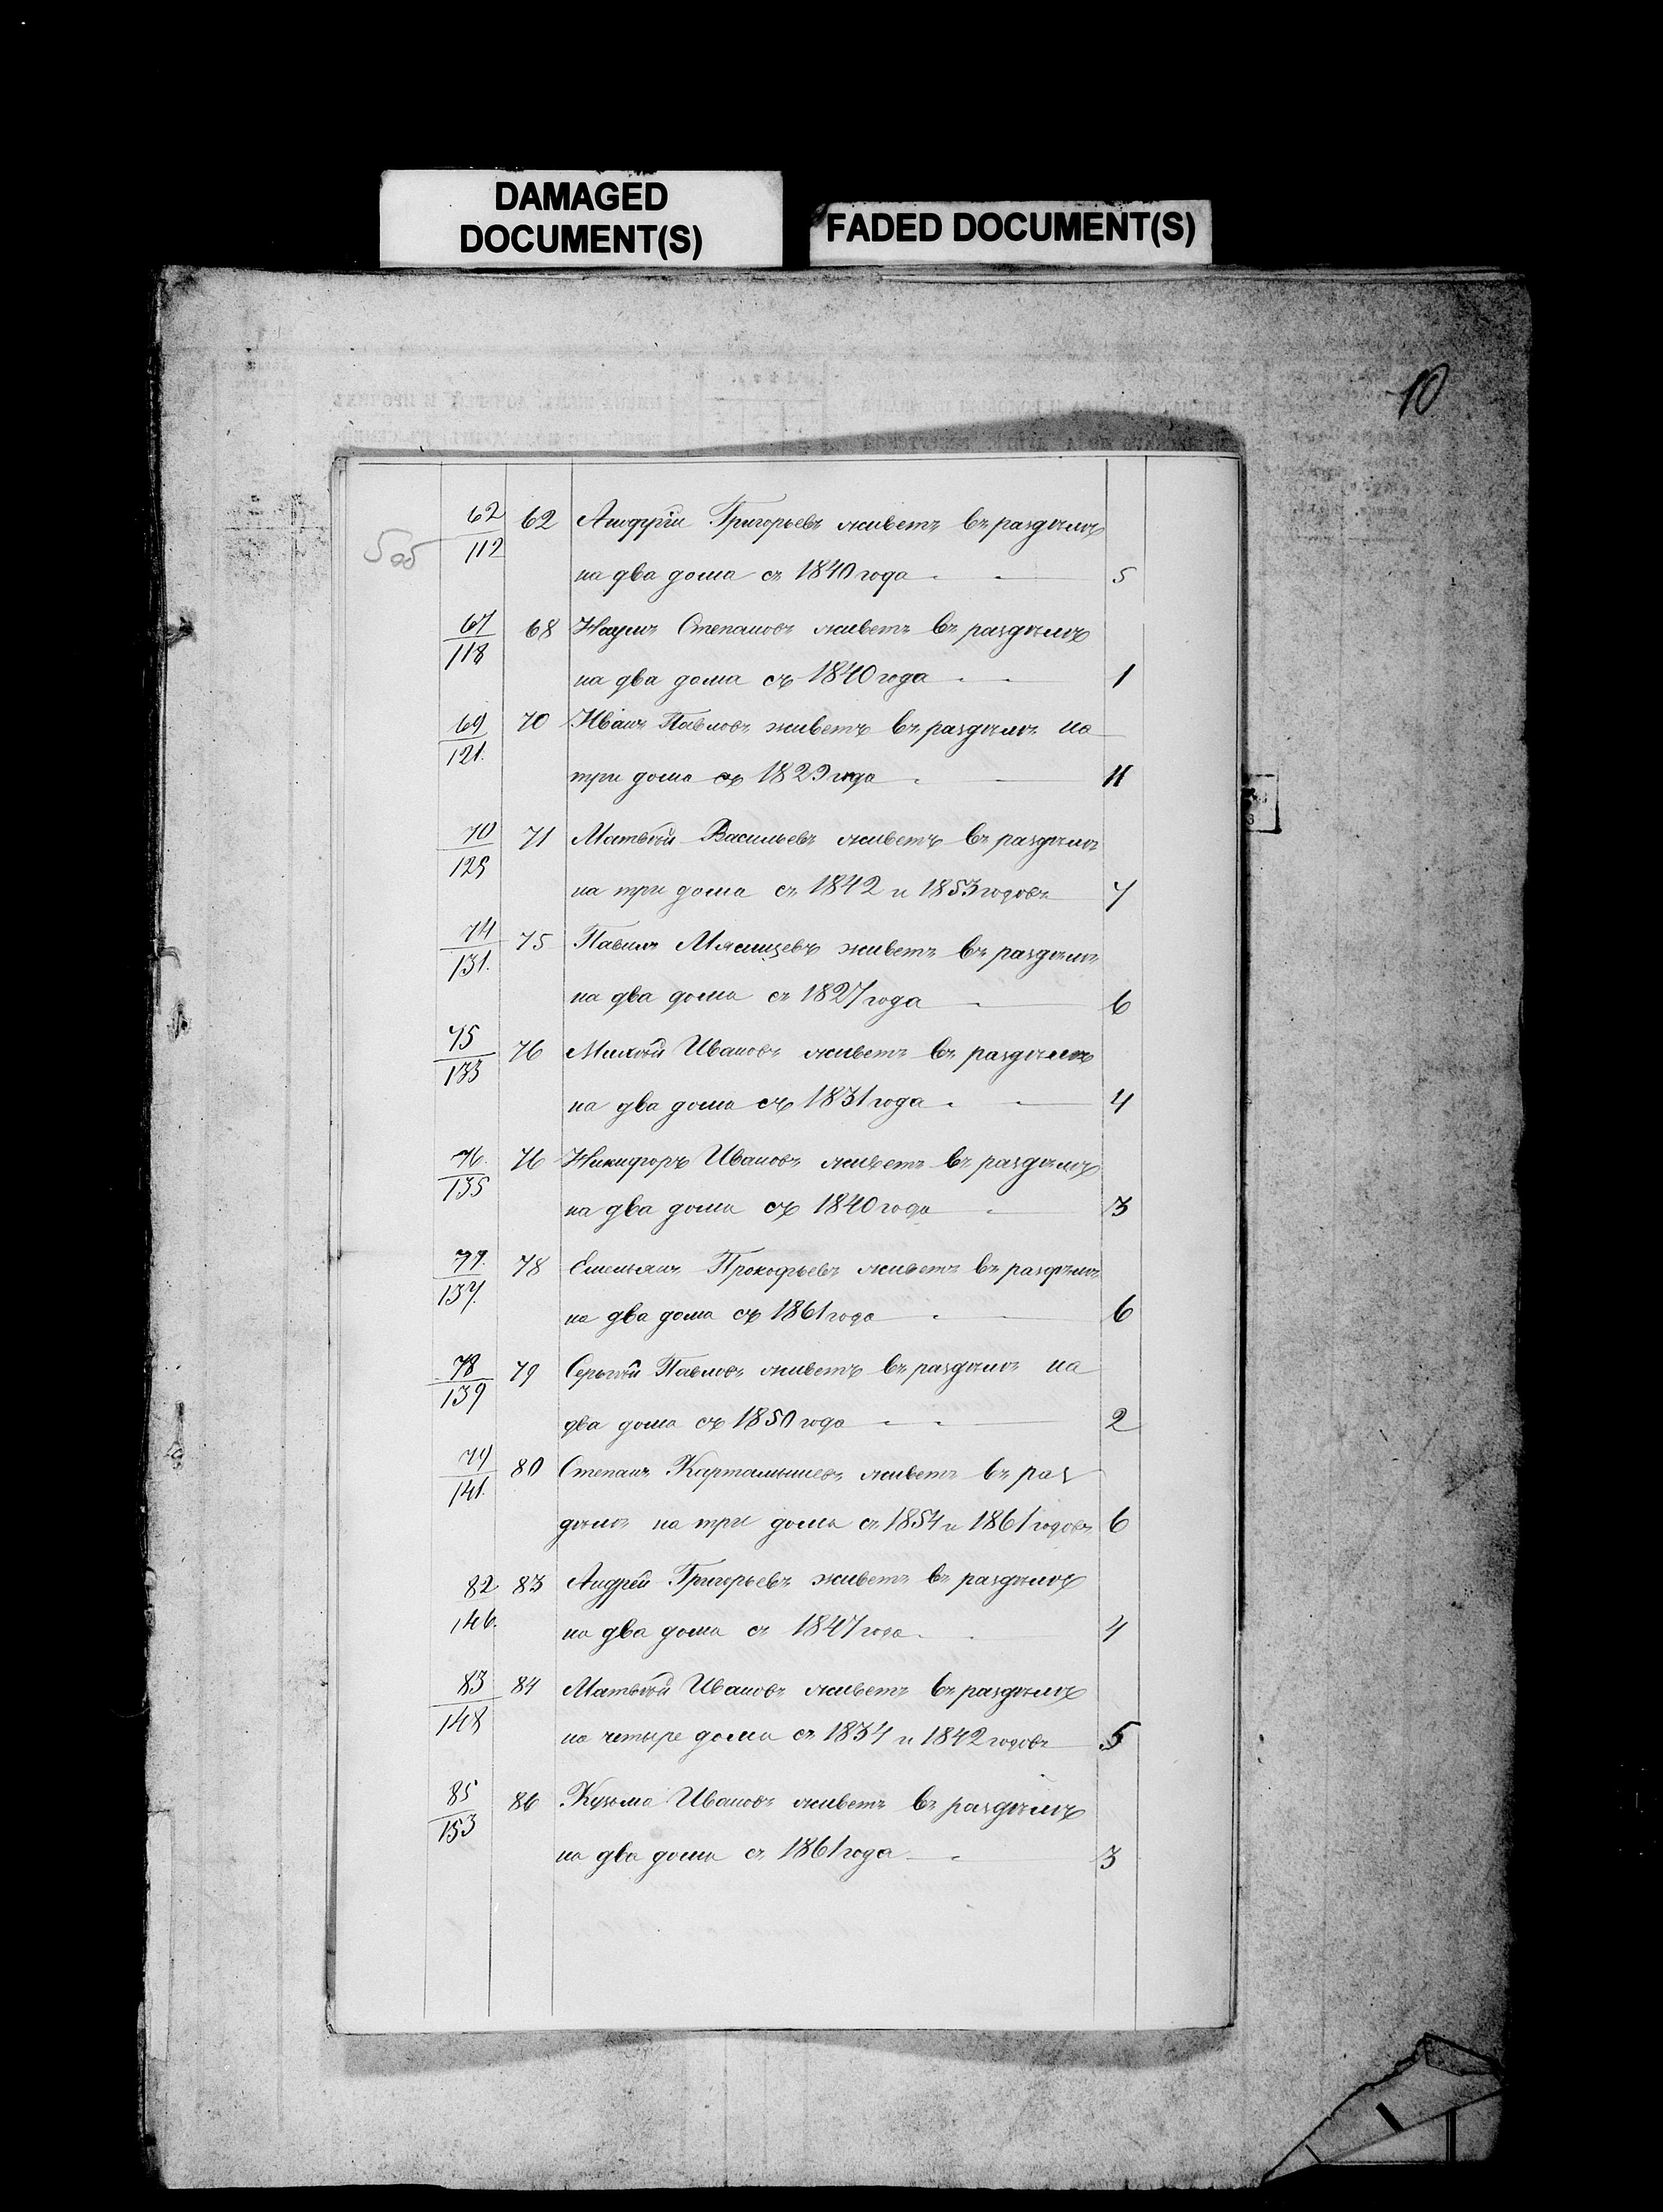 DAMAGED
DOCUMENT(S)
FADED DOCUMENT(S)
10
5 об
62/112 62 Анофрій Григорьевъ живетъ въ раздѣлѣ
на два дома съ 1840 года 5
67/118 68 Наумъ Степановъ живетъ въ раздѣлѣ
на два дома съ 1840 года 1
69/121. 70 Иванъ Павловъ живетъ въ раздѣлѣ на
три дома съ 1829 года 11
70/125 71 Матвѣй Васильевъ живетъ въ раздѣлѣ
на три дома съ 1842 и 1853 годовъ 7
74/131. 75 Павелъ Мясищевъ живетъ въ раздѣлѣ
на два дома съ 1827 года 6
75/133 76 Михѣй Ивановъ живетъ въ раздѣлѣ
на два дома съ 1831 года 4
76./135 76 Никифоръ Ивановъ живетъ въ раздѣлѣ
на два дома съ 1840 года 3
77./137. 78 Емельянъ Прокофьевъ живетъ въ раздѣлѣ
на два дома съ 1861 года 6
78/139 79 Сергѣй Павловъ живетъ въ раздѣлѣ на
два дома съ 1850 года 2
79/141. 80 Степанъ Картамышевъ живетъ въ раз
дѣлѣ на три дома съ 1854 и 1861 годовъ 6
82/146. 83 Андрей Григорьевъ живетъ въ раздѣлѣ
на два дома съ 1847 года 4
83/148 84 Матвѣй Ивановъ живетъ въ раздѣлѣ
на четыре дома съ 1834 и 1842 годовъ 5
85/153 86 Кузьма Ивановъ живетъ въ раздѣлѣ
на два дома съ 1861 года 3